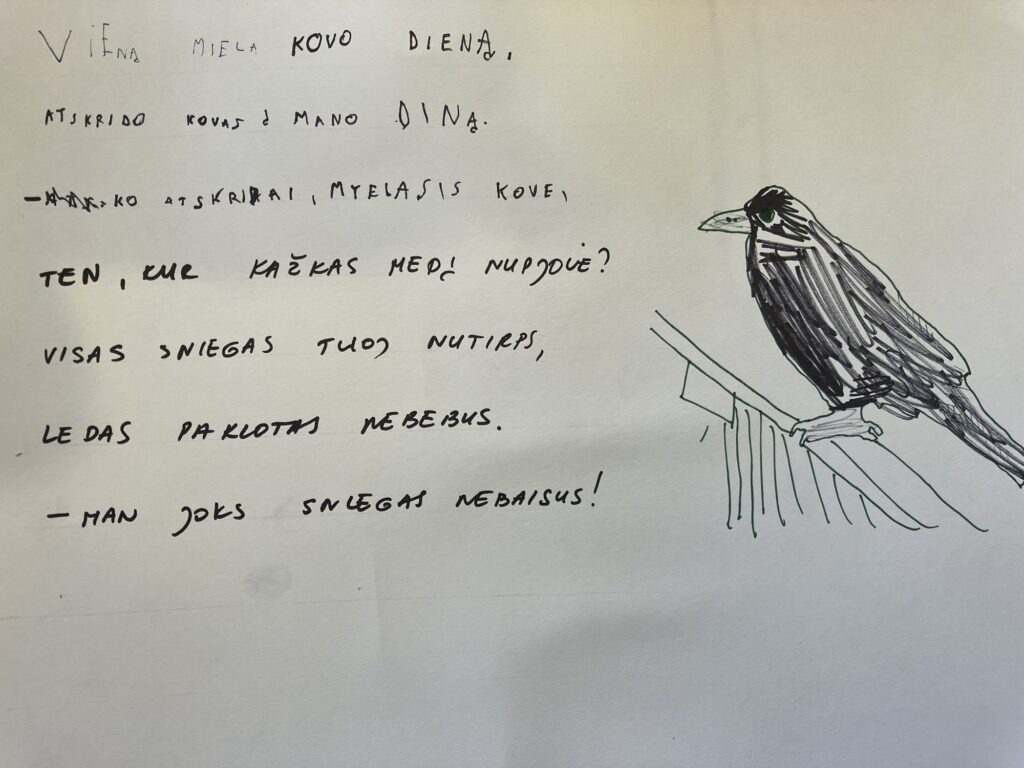 VIENĄ MIELA KOVO DIENĄ,
ATSKRIDO KOVAS Į MANO DINĄ.
– KO ATSKRIDAI, MYELASIS KOVE,
TEN, KUR KAŽKAS MEDĮ NUPJOVĖ?
VISAS SNIEGAS TUOJ NUTIRPS,
LEDAS PAKLOTAS NEBEBUS.
– MAN JOKS SNIEGAS NEBAISUS!